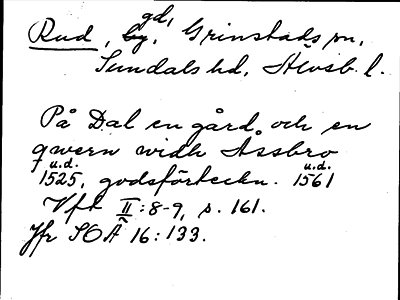 Rud, by, gd, Grinstads sn,
Sundals hd, Älvsb. l.
På Dal en gård och en
qwern widh Assbro
1525, u.d. godsförteckn. 1561 u.d.
Vft II:8-9, s. 161.
Jfr SOÄ 16:133.